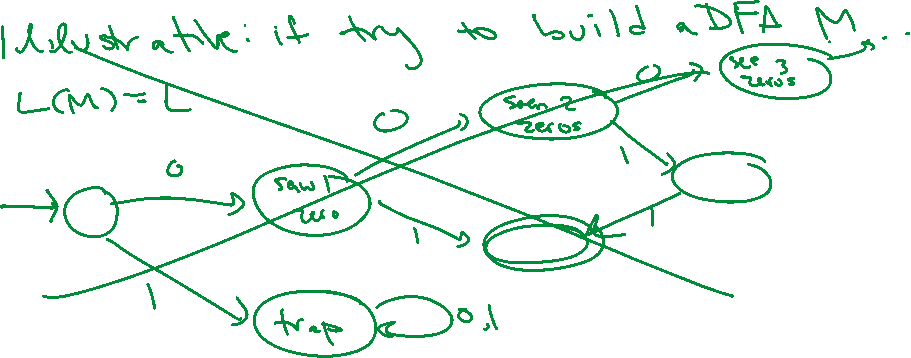 Illustrative: if try to build a DFA M...
L(M) = L
see 3 zeros
0
seen 2 zeros
0
0
saw 1 zero
1
1
1
1
trap
0,1